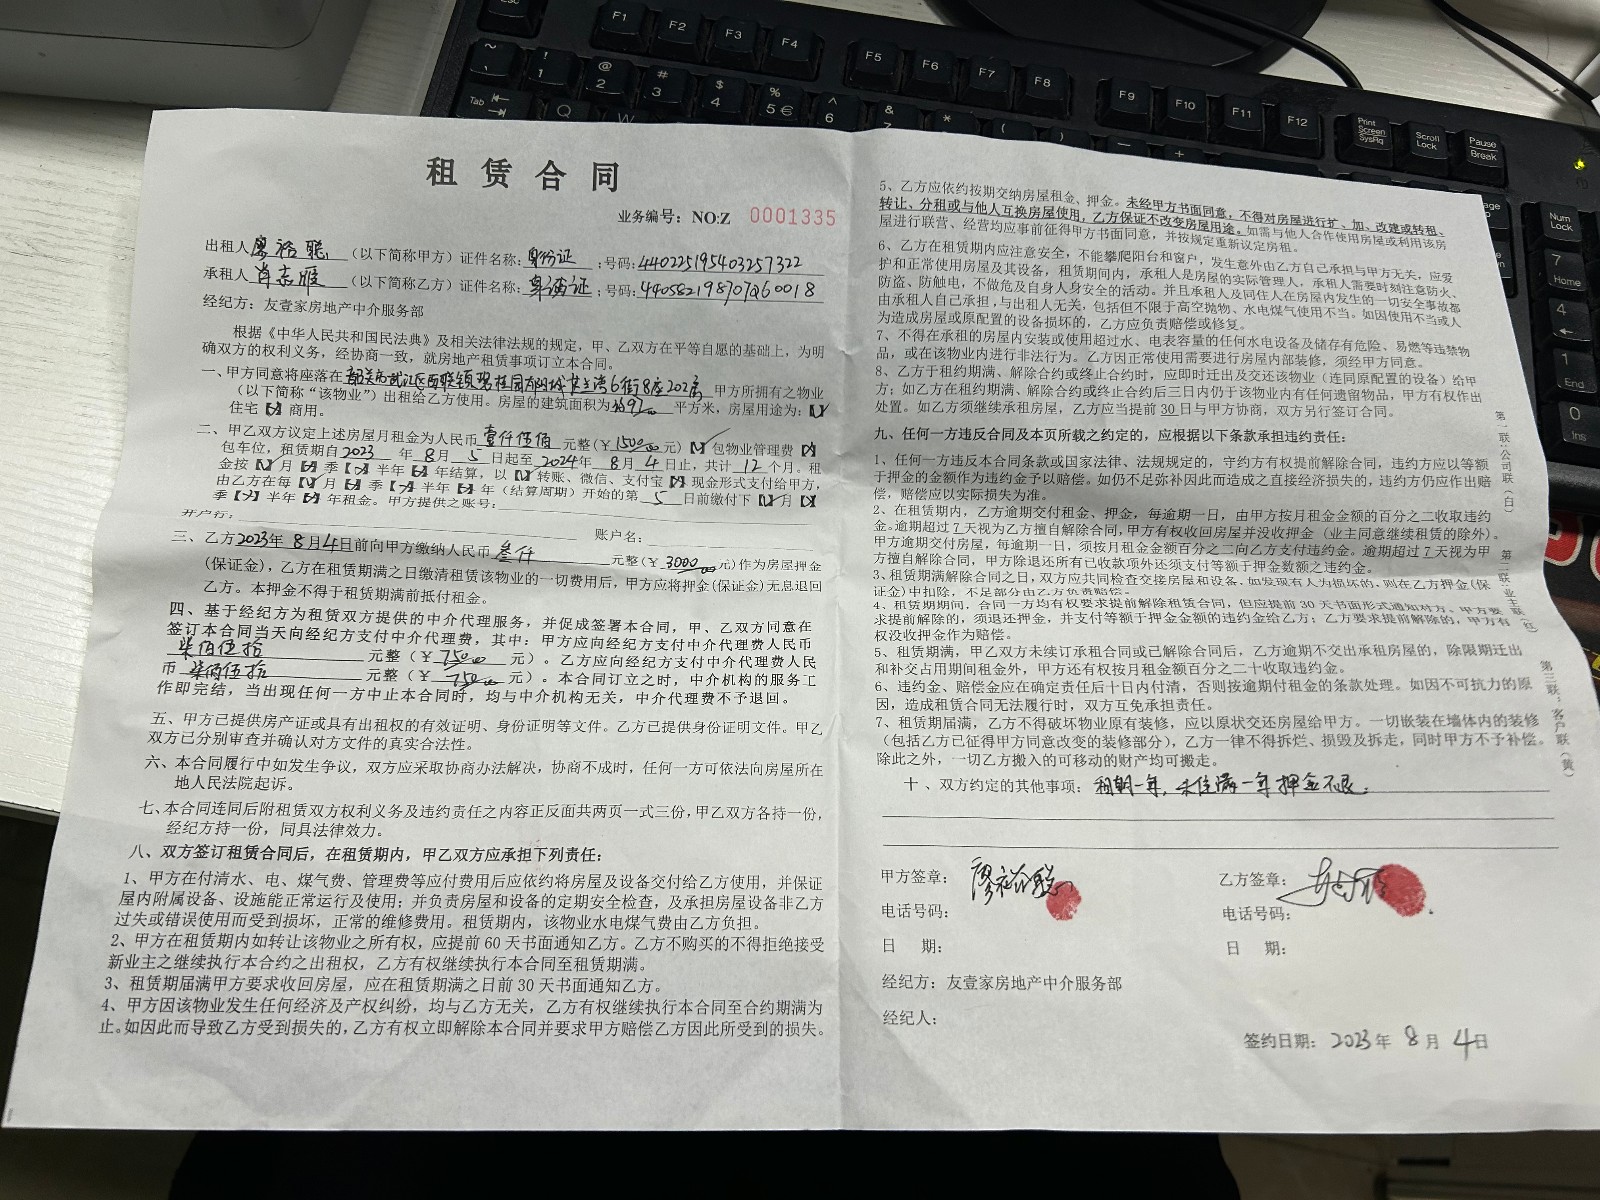 租赁合同
业务编号：NO:Z 0001335
出租人廖裕聪（以下简称甲方）证件名称：身份证；号码：440225195403257322
承租人肖志雁（以下简称乙方）证件名称：身份证；号码：440582198707260018
经纪方：友壹家房地产中介服务部
根据《中华人民共和国民法典》及相关法律法规的规定，甲、乙双方在平等自愿的基础上，为明
确双方的权利义务，经协商一致，就房地产租赁事项订立本合同。
一、甲方同意将座落在韶关市武江区西联镇碧桂园 6街8座202房 甲方所拥有之物业
（以下简称“该物业”）出租给乙方使用。房屋的建筑面积为 平方米，房屋用途为：【】
住宅【】商用。
二、甲乙双方议定上述房屋月租金为人民币壹仟伍佰元整（￥1500.00元）【】包物业管理费【】
包车位，租赁期自2023年8月5日起至2024年8月4日止，共计12个月。租
金按【】月【】季【】半年【】年结算，以【】转账、微信、支付宝【】现金形式支付给甲方，
由乙方在每【】月【】季【】半年【】年（结算周期）开始的第5日前缴付下【】月【】
季【】半年【】年租金。甲方提供之账号：
开户行： 账户名：
三、乙方2023年8月4日前向甲方缴纳人民币叁仟元整（￥3000.00元）作为房屋押金
（保证金），乙方在租赁期满之日缴清租赁该物业的一切费用后，甲方应将押金（保证金）无息退回
乙方。本押金不得于租赁期满前抵付租金。
四、基于经纪方为租赁双方提供的中介代理服务，并促成签署本合同，甲、乙双方同意在
签订本合同当天向经纪方支付中介代理费，其中：甲方应向经纪方支付中介代理费人民币
柒佰伍拾元整（￥750.00元）。乙方应向经纪方支付中介代理费人民
币柒佰伍拾元整（￥750.00元）。本合同订立之时，中介机构的服务工
作即完结，当出现任何一方中止本合同时，均与中介机构无关，中介代理费不予退回。
五、甲方已提供房产证或具有出租权的有效证明、身份证明等文件。乙方已提供身份证明文件。甲乙
双方已分别审查并确认对方文件的真实合法性。
六、本合同履行中如发生争议，双方应采取协商办法解决，协商不成时，任何一方可依法向房屋所在
地人民法院起诉。
七、本合同连同后附租赁双方权利义务及违约责任之内容正反面共两页一式三份，甲乙双方各持一份，
经纪方持一份，同具法律效力。
八、双方签订租赁合同后，在租赁期内，甲乙双方应承担下列责任：
1、甲方在付清水、电、煤气费、管理费等应付费用后应依约将房屋及设备交付给乙方使用，并保证
屋内附属设备、设施能正常运行及使用；并负责房屋和设备的定期安全检查，及承担房屋设备非乙方
过失或错误使用而受到损坏，正常的维修费用。租赁期内，该物业水电煤气费由乙方负担。
2、甲方在租赁期内如转让该物业之所有权，应提前60天书面通知乙方。乙方不购买的不得拒绝接受
新业主之继续执行本合约之出租权，乙方有权继续执行本合同至租赁期满。
3、租赁期届满甲方要求收回房屋，应在租赁期满之日前30天书面通知乙方。
4、甲方因该物业发生任何经济及产权纠纷，均与乙方无关，乙方有权继续执行本合同至合约期满为
止。如因此而导致乙方受到损失的，乙方有权立即解除本合同并要求甲方赔偿乙方因此所受到的损失。
5、乙方应依约按期交纳房屋租金、押金。未经甲方书面同意，不得对房屋进行扩、加、改建或转租、
转让、分租或与他人互换房屋使用，乙方保证不改变房屋用途。如需与他人合作使用房屋或利用该房
屋进行联营、经营均应事前征得甲方书面同意，并按规定重新议定房租。
6、乙方在租赁期内应注意安全，不能攀爬阳台和窗户，发生意外由乙方自己承担与甲方无关，应爱
护和正常使用房屋及其设备，租赁期间内，承租人是房屋的实际管理人，承租人需要时刻注意防火、
防盗、防触电，不做危及自身人身安全的活动。并且承租人及同住人在房屋内发生的一切安全事故都
由承租人自己承担，与出租人无关，包括但不限于高空抛物、水电煤气使用不当。如因使用不当或人
为造成房屋或原配置的设备损坏的，乙方应负责赔偿或修复。
7、不得在承租的房屋内安装或使用超过水、电表容量的任何水电设备及储存有危险、易燃等违禁物
品，或在该物业内进行非法行为。乙方因正常使用需要进行房屋内部装修，须经甲方同意。
8、乙方于租约期满、解除合约或终止合约时，应即时迁出及交还该物业（连同原配置的设备）给甲
方；如乙方在租约期满、解除合约或终止合约后三日内仍于该物业内有任何遗留物品，甲方有权作出
处置。如乙方须继续承租房屋，乙方应当提前30日与甲方协商，双方另行签订合同。
九、任何一方违反合同及本页所载之约定的，应根据以下条款承担违约责任：
1、任何一方违反本合同条款或国家法律、法规规定的，守约方有权提前解除合同，违约方应以等额
于押金的金额作为违约金予以赔偿。如仍不足弥补因此而造成之直接经济损失的，违约方仍应作出赔
偿，赔偿应以实际损失为准。
2、在租赁期内，乙方逾期交付租金、押金，每逾期一日，由甲方按月租金金额的百分之二收取违约
金。逾期超过7天视为乙方擅自解除合同，甲方有权收回房屋并没收押金（业主同意继续租赁的除外）。
甲方逾期交付房屋，每逾期一日，须按月租金金额百分之二向乙方支付违约金。逾期超过7天视为甲
方擅自解除合同，甲方除退还所有已收款项外还须支付等额于押金数额之违约金。
3、租赁期满解除合同之日，双方应共同检查交接房屋和设备，如发现有人为损坏的，则在乙方押金（保
证金）中扣除，不足部分由乙方负责赔偿。
4、租赁期期间，合同一方均有权要求提前解除租赁合同，但应提前30天书面形式通知对方。甲方要
求提前解除的，须退还押金，并支付等额于押金金额的违约金给乙方；乙方要求提前解除的，甲方有
权没收押金作为赔偿。
5、租赁期满，甲乙双方未续订承租合同或已解除合同后，乙方逾期不交出承租房屋的，除限期迁出
和补交占用期间租金外，甲方还有权按月租金额百分之二十收取违约金。
6、违约金、赔偿金应在确定责任后十日内付清，否则按逾期付租金的条款处理。如因不可抗力的原
因，造成租赁合同无法履行时，双方互免承担责任。
7、租赁期届满，乙方不得破坏物业原有装修，应以原状交还房屋给甲方。一切嵌装在墙体内的装修
（包括乙方已征得甲方同意改变的装修部分），乙方一律不得拆烂、损毁及拆走，同时甲方不予补偿。
除此之外，一切乙方搬入的可移动的财产均可搬走。
十、双方约定的其他事项：租期一年，未住满一年押金不退。
甲方签章：廖裕聪
乙方签章：
电话号码：
电话号码：
日 期：
日 期：
经纪方：友壹家房地产中介服务部
经纪人：
签约日期：2023年8月4日
第一联：公司联（白）
第二联：业主联（红）
第三联：客户联（黄）
Esc
F1 F2 F3 F4 F5 F6 F7 F8 F9 F10 F11 F12
Print Screen SysRq
Scroll Lock
Pause Break
Num Lock
Tab Q W
7 Home
4
1 End
0 Ins